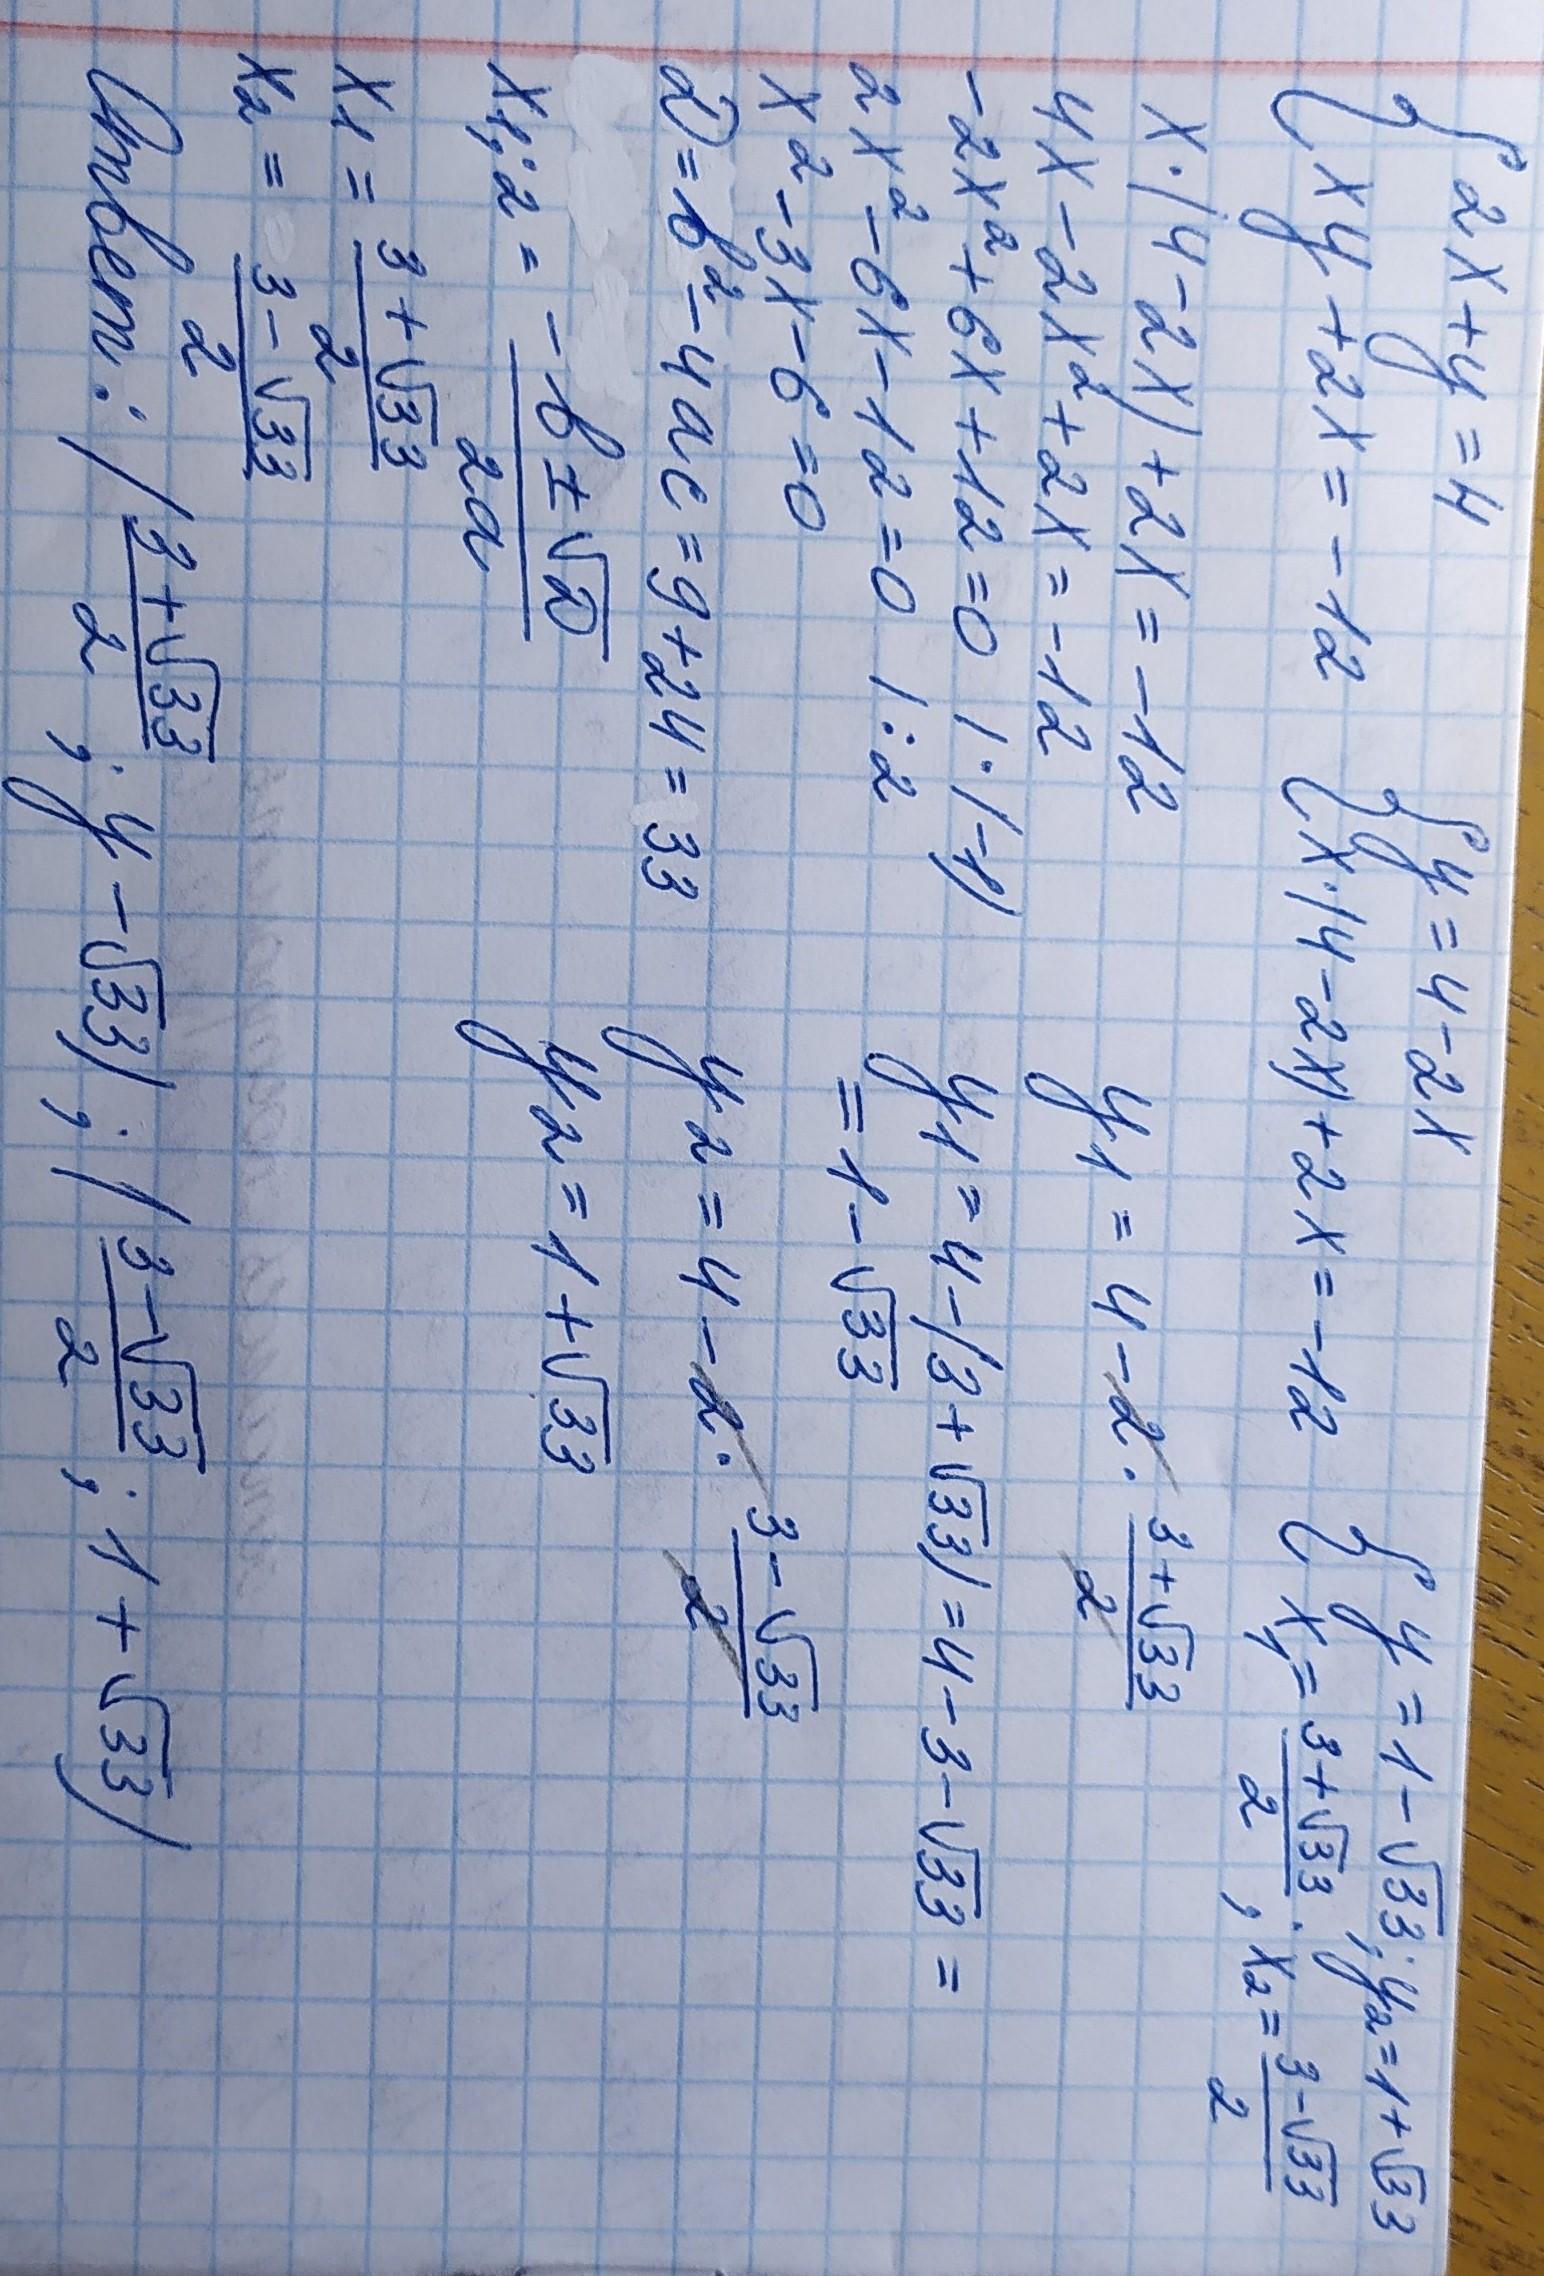 { 2x+y=4 { y=4-2x { y=1-√33; y2=1+√33
{ xy+2x=-12 { x·(4-2x)+2x=-12 { x1=(3+√33)/2; x2=(3-√33)/2
x·(4-2x)+2x=-12
4x-2x²+2x=-12
-2x²+6x+12=0 |·(-1)
2x²-6x-12=0 |:2
x²-3x-6=0
D=b²-4ac=9+24=33
x1;2=(-b±√D)/2a
x1=(3+√33)/2
x2=(3-√33)/2
y1=4-2·(3+√33)/2
y1=4-(3+√33)=4-3-√33=
=1-√33
y2=4-2·(3-√33)/2
y2=1+√33
Ответ: ((3+√33)/2; y-√33); ((3-√33)/2; 1+√33)